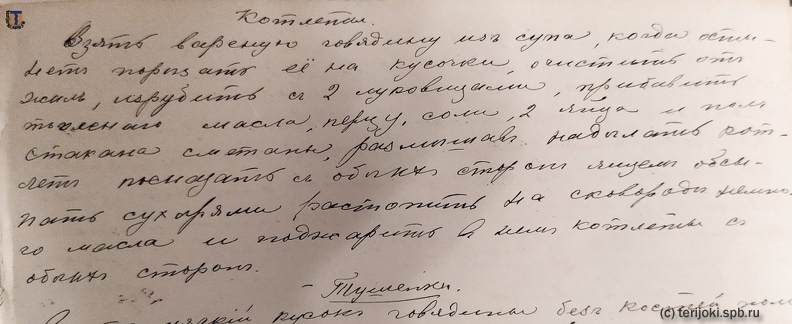 Котлеты.
Взять вареную говядину изъ супа, когда осты-
нетъ порѣзать её на кусочки, очистить отъ
жилъ, изрубить съ 2 луковицами, прибавить
масла, перцу, соли, 2 яйца и пол
стакана сметаны, размѣшавъ надѣлать кот-
летъ помазать съ обѣихъ сторонъ яйцемъ обсы-
пать сухарями растопить на сковородѣ немно-
го масла и поджарить в нем котлеты съ
обѣихъ сторонъ.
Тушенки.
кусокъ говядины безъ костей
(c) terijoki.spb.ru